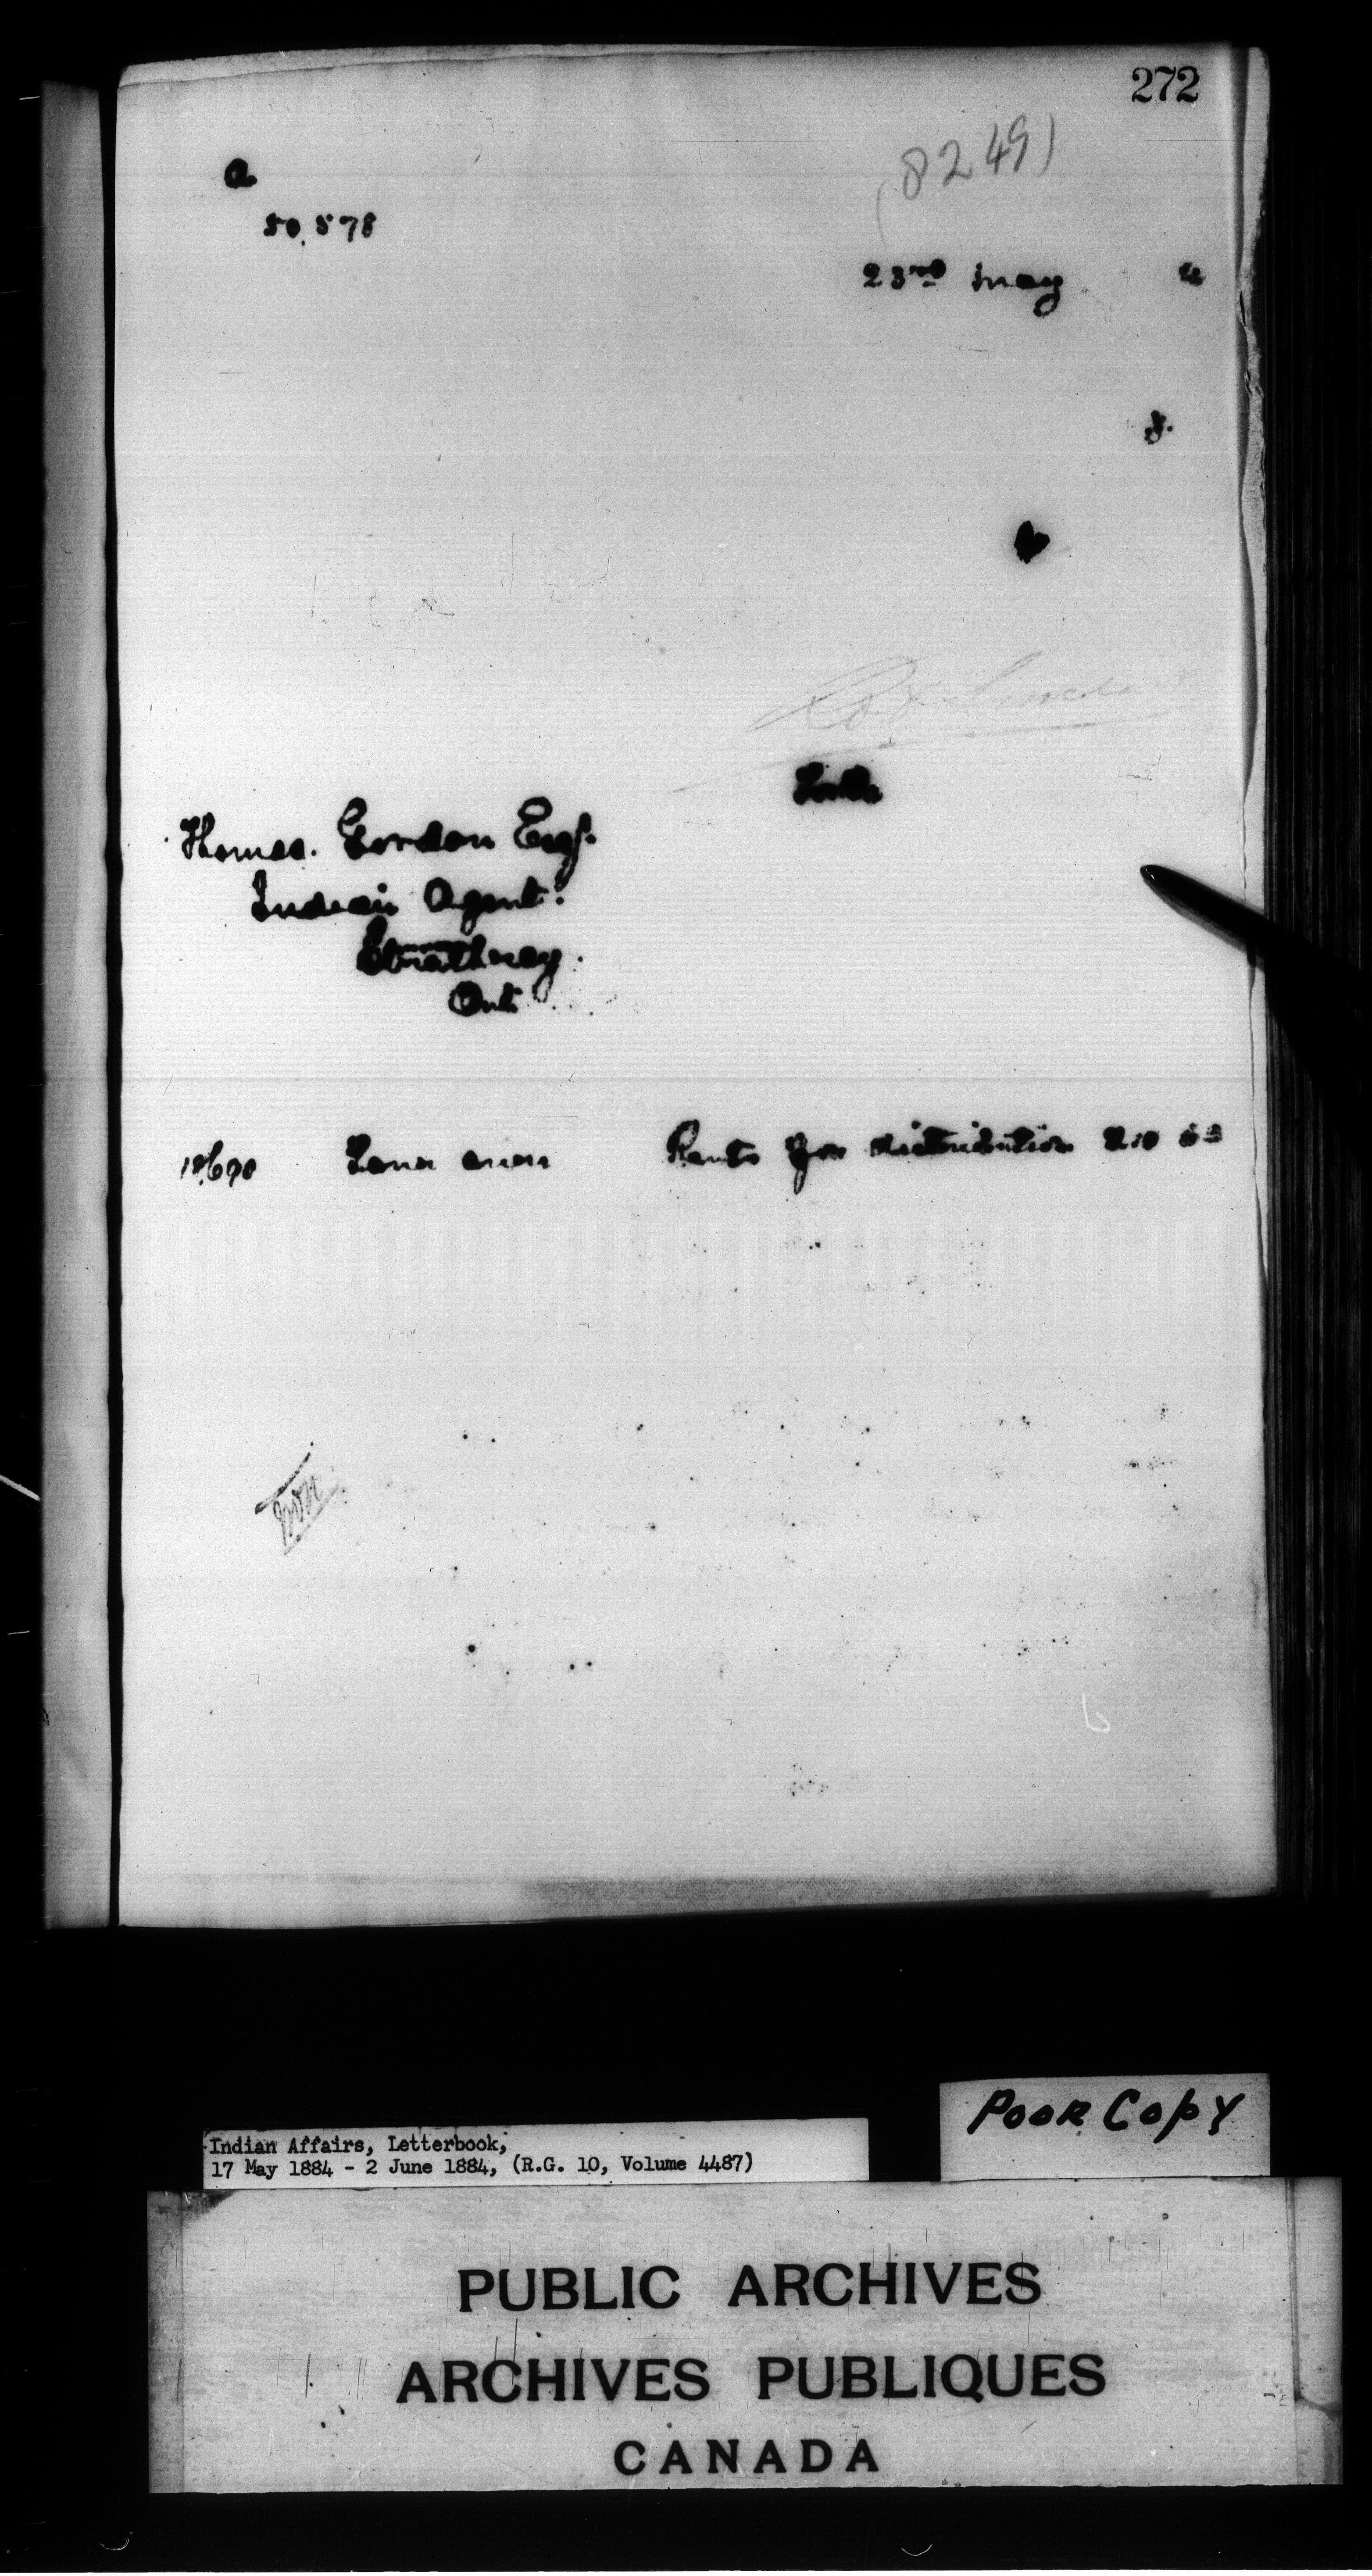 272
(8249)
a
50,578
23rd May 4
Thomas. Gordon Esq.
Indian Agent.
Strathroy.
Ont
Rents for distribution
Poor Copy
Indian Affairs, Letterbook,
17 May 1884 - 2 June 1884, (R.G. 10, Volume 4487)
PUBLIC ARCHIVES
ARCHIVES PUBLIQUES
CANADA